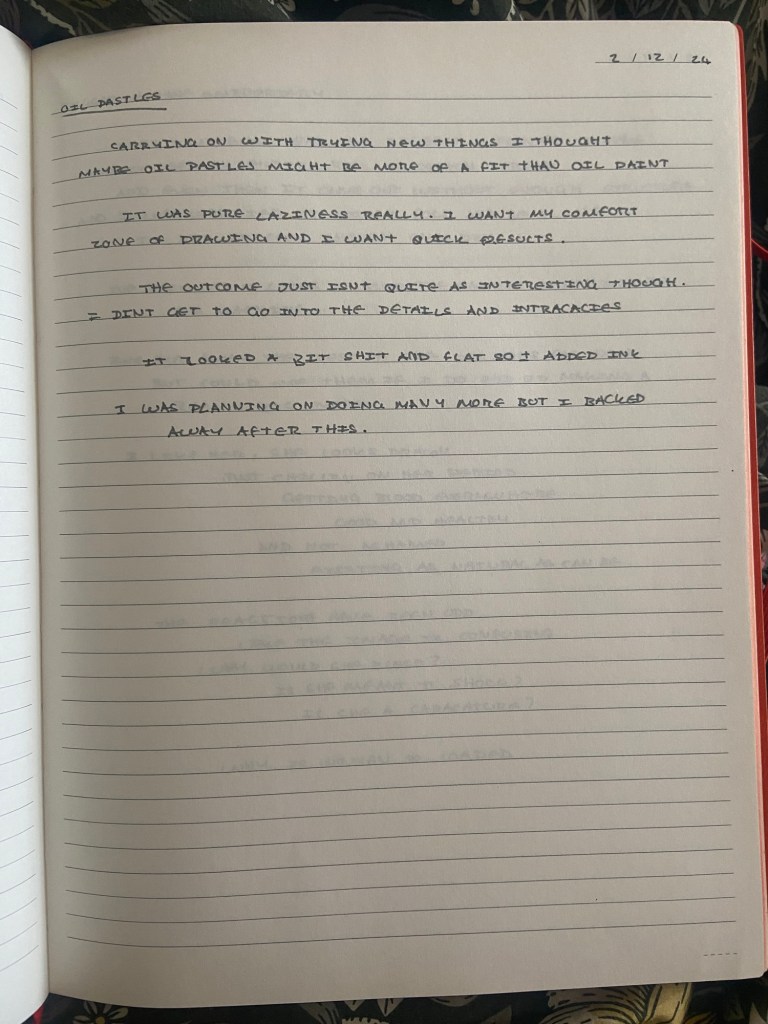 2 / 12 / 24
OIL PASTLES
CARRYING ON WITH TRYING NEW THINGS I THOUGHT
MAYBE OIL PASTLES MIGHT BE MORE OF A FIT THAN OIL PAINT
IT WAS PURE LAZINESS REALLY. I WANT MY COMFORT
ZONE OF DRAWING AND I WANT QUICK RESULTS.
THE OUTCOME JUST ISNT QUITE AS INTERESTING THOUGH.
I DINT GET TO GO INTO THE DETAILS AND INTRACACIES
IT LOOKED A BIT SHIT AND FLAT SO I ADDED INK
I WAS PLANNING ON DOING MANY MORE BUT I BACKED
AWAY AFTER THIS.